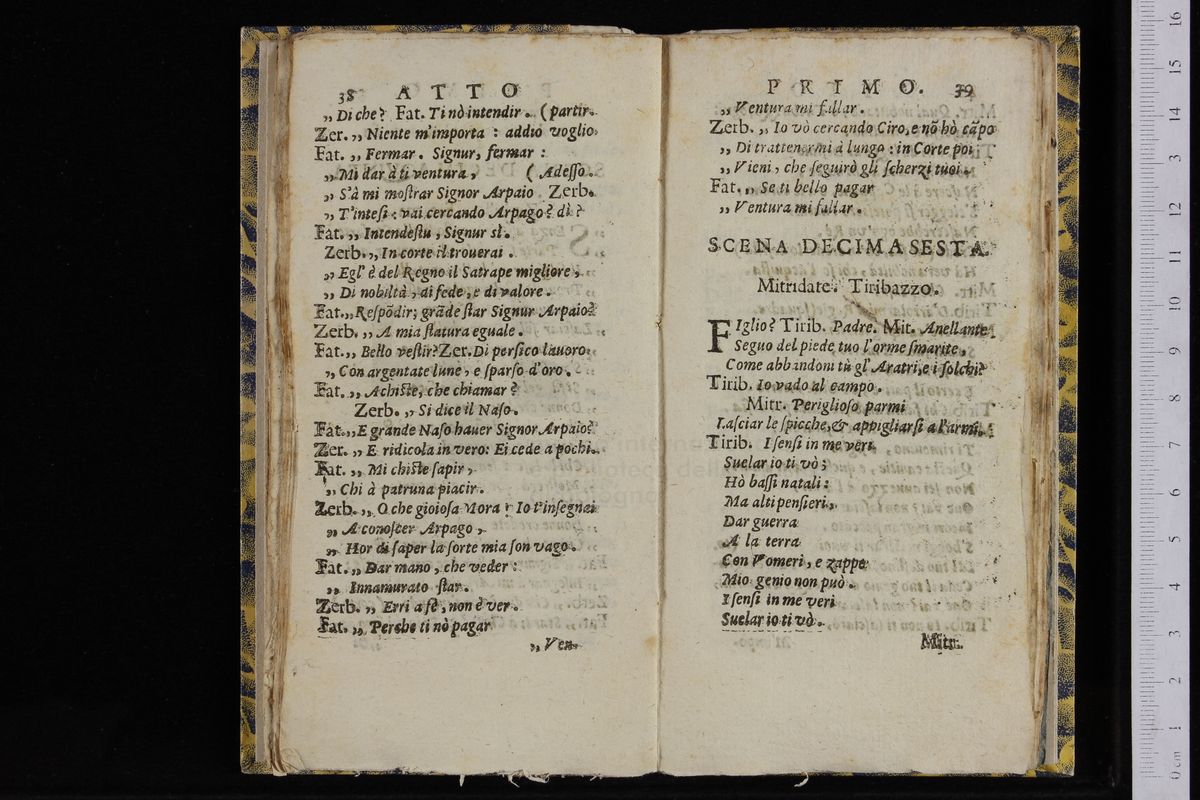 38 ATTO
„ Di che? Fat. Ti nò intendir. (partir.
Zer. „ Niente m'importa : addio voglio
Fat. „ Fermar. Signur, fermar :
„ Mi dar à ti ventura, ( Adeſſo.
„ S'à mi moſtrar Signor Arpaio Zerb.
„ T'inteſi : vai cercando Arpago? dì?
Fat. „ Intendeſtu, Signur sì.
Zerb. „ In corte il trouerai.
„ Egl' è del Regno il Satrape migliore,
„ Di nobiltà, di fede, e di valore.
Fat. „ Reſpõdir; grãde ſtar Signur Arpaio?
Zerb. „ A mia ſtatura eguale.
Fat. „ Bello veſtir? Zer. Di perſico lauoro
„ Con argentate lune, e ſparſo d'oro.
Fat. „ A chiſte, che chiamar?
Zerb. „ Si dice il Naſo.
Fat. „ E grande Naſo hauer Signor Arpaio?
Zer. „ E ridicola in vero: Ei cede a pochi.
Fat. „ Mi chiſte ſapir,
„ Chi à patruna piacir.
Zerb. „ O che gioioſa Mora! Io t'inſegnai
„ A conoſcer Arpago,
„ Hor di ſaper la ſorte mia ſon vago.
Fat. „ Dar mano, che veder :
„ Innamurato ſtar.
Zerb. „ Erri a fè, non è ver.
Fat. „ Perche ti nò pagar
„ Ven-
PRIMO. 39
„ Ventura mi fallar.
Zerb. „ Io vò cercando Ciro, e nõ hò cãpo
„ Di trattenermi à lungo : in Corte poi
„ Vieni, che ſeguirò gli ſcherzi tuoi.
Fat. „ Se ti bello pagar
„ Ventura mi fallar.
SCENA DECIMASESTA.
Mitridate. Tiribazzo.
FIglio? Tirib. Padre. Mit. Anellante
Seguo del piede tuo l'orme ſmarite,
Come abbandoni tù gl' Aratri, e i ſolchi?
Tirib. Io vado al campo.
Mitr. Periglioſo parmi
Laſciar le ſpicche, & appigliarſi a l'armi.
Tirib. I ſenſi in me veri
Suelar io ti vò;
Hò baſſi natali :
Ma alti penſieri,
Dar guerra
A la terra
Con Vomeri, e zappe
Mio genio non può.
I ſenſi in me veri
Suelar io ti vò.
Mitr.